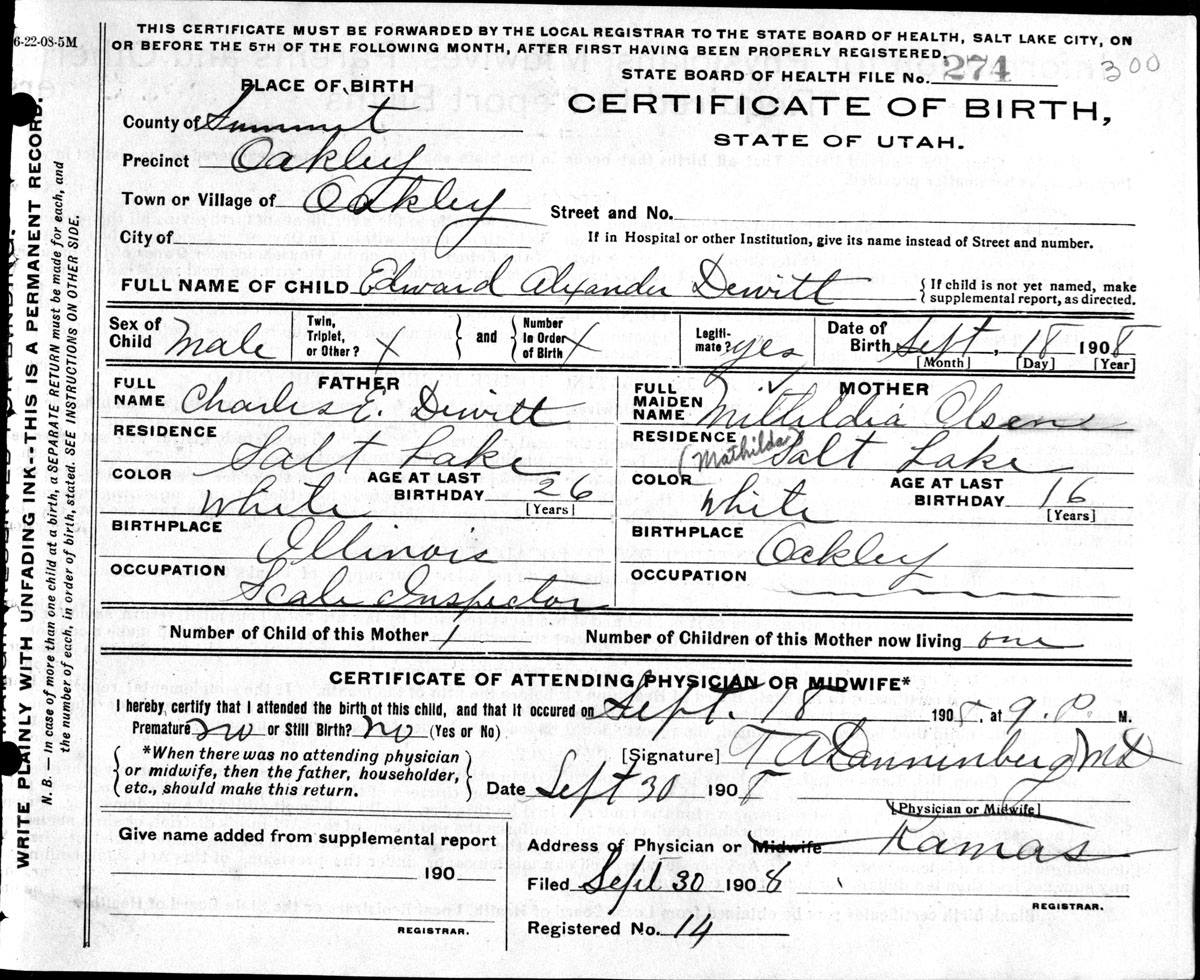 6-22-08-5M
THIS CERTIFICATE MUST BE FORWARDED BY THE LOCAL REGISTRAR TO THE STATE BOARD OF HEALTH, SALT LAKE CITY, ON
OR BEFORE THE 5TH OF THE FOLLOWING MONTH, AFTER FIRST HAVING BEEN PROPERLY REGISTERED.
STATE BOARD OF HEALTH FILE No. 274 300
PLACE OF BIRTH
CERTIFICATE OF BIRTH,
STATE OF UTAH.
County of Summit
Precinct Oakley
Town or Village of Oakley
Street and No.
City of
If in Hospital or other Institution, give its name instead of Street and number.
FULL NAME OF CHILD Edward Alexander Dewitt { If child is not yet named, make
supplemental report, as directed.
Sex of Child Male Twin, Triplet, or Other? X } and { Number In Order of Birth X Legiti- mate? yes Date of Birth Sept, 18 1908
[Month] [Day] [Year]
FATHER
FULL NAME Charles E. Dewitt
RESIDENCE Salt Lake
COLOR White AGE AT LAST BIRTHDAY 26
[Years]
BIRTHPLACE Illinois
OCCUPATION Scale Inspector
MOTHER
FULL MAIDEN NAME Olsen
RESIDENCE (Mathilda) Salt Lake
COLOR White AGE AT LAST BIRTHDAY 16
[Years]
BIRTHPLACE Oakley
OCCUPATION
Number of Child of this Mother 1 Number of Children of this Mother now living one
CERTIFICATE OF ATTENDING PHYSICIAN OR MIDWIFE*
I hereby certify that I attended the birth of this child, and that it occured on Sept. 18 1908, at 9. P. M.
Premature no or Still Birth? no (Yes or No)
{ *When there was no attending physician
or midwife, then the father, householder,
etc., should make this return. }
[Signature] T A Dannenberg MD
Date Sept 30 1908
[Physician or Midwife]
Give name added from supplemental report
190
REGISTRAR.
Address of Physician or Midwife Kamas
Filed Sept 30 1908
REGISTRAR.
Registered No. 14
WRITE PLAINLY WITH UNFADING INK--THIS IS A PERMANENT RECORD.
N. B. — In case of more than one child at a birth, a SEPARATE RETURN must be made for each, and
the number of each, in order of birth, stated. SEE INSTRUCTIONS ON OTHER SIDE.